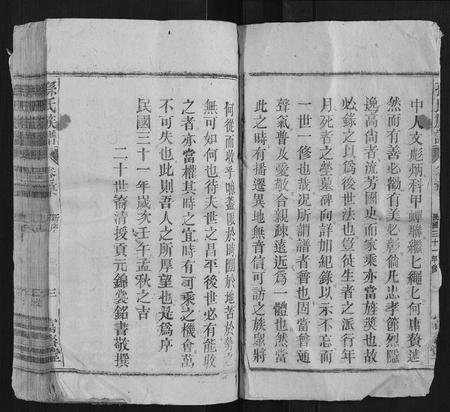 中人文彪炳科甲蟬聯繩繩何庸贅述
然而有善必徵有美必彰倘凡忠孝節烈隱
逸高尚者流芳國史而家乘亦當旌獎也故
必錄之以為後世法也豈徒生者之派行年
月死者之塋墓碑向詳加紀錄以示不忘而
一世一修也哉況所謂譜者普也固當普通
聲氣普及愛敬合親疎遠近為一體也然當
此之時有播遷異地無音信可訪之族眾將
何從而收乎嗚蓋限於時間於地苦於勢
無可如何也待夫世之昌平後世必有能收
之者亦當權其時之宜時有可乘之機會萬
不可失也此則吾人之所厚望也是為序
民國三十一年歲次壬午孟秋之吉
二十世裔清授貢元錦裳銘書敬撰
孫氏族譜
三